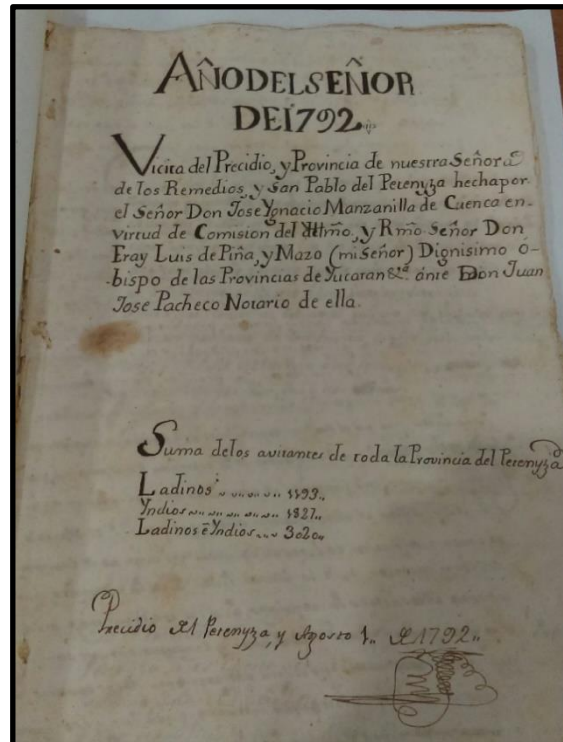 AÑO DEL SEÑOR
DE 1792
Vicita del Precidio, y Provincia de nuestra Señora
de los Remedios, y San Pablo del Petenyza hecha por
el Señor Don Jose Ygnacio Manzanilla de Cuenca en-
virtud de Comision del Yllmo, y Rmo Señor Don
Fray Luis de Piña, y Mazo (mi Señor) Dignisimo ó-
-bispo de las Provincias de Yucatan &a. ante Don Juan
Jose Pacheco Notario de ella.
Suma de los avitantes de toda la Provincia del Petenyza
Ladinos 1193
Yndios 1827
Ladinos é Yndios 3020
Precidio del Petenyza, y Agosto 1 de 1792